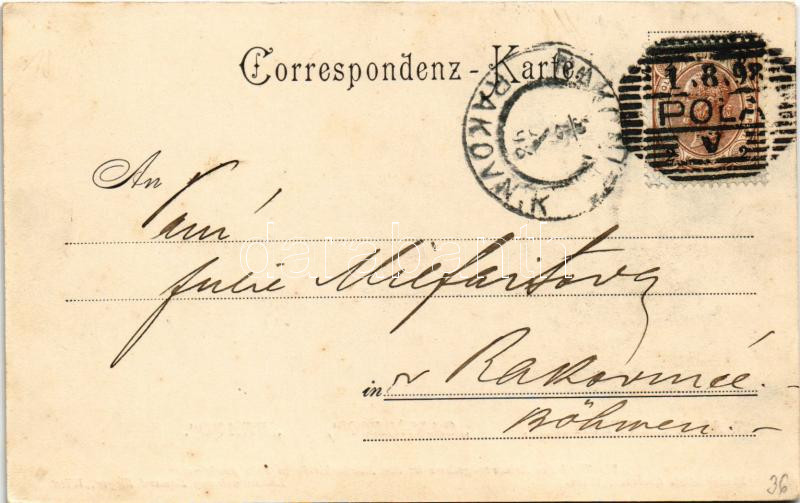 Correspondenz-Karte
1.8.98
POLA
V
RAKONITZ
RAKOVNÍK
An
Paní
Julie Milfaitova
in v Rakovníce.
Böhmen.
darabanth
36